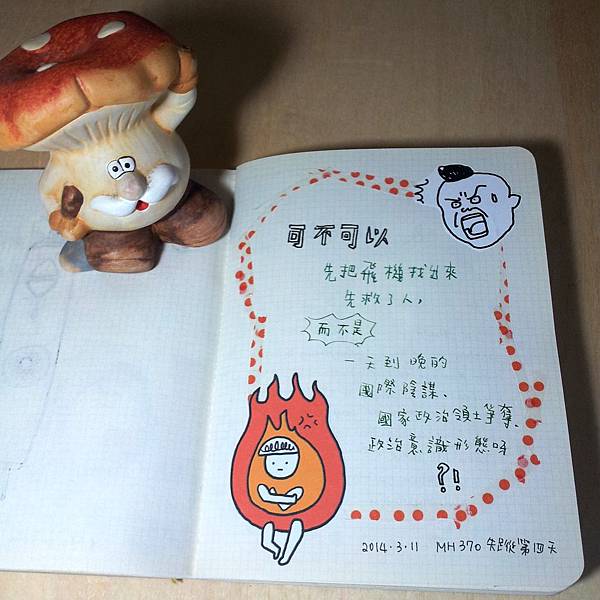 可不可以
先把飛機找出來
先救了人,
而不是
一天到晚的
國際陰謀、
國家政治領土爭奪、
政治意識形態呀
?!
2014.3.11 MH370 失蹤第四天